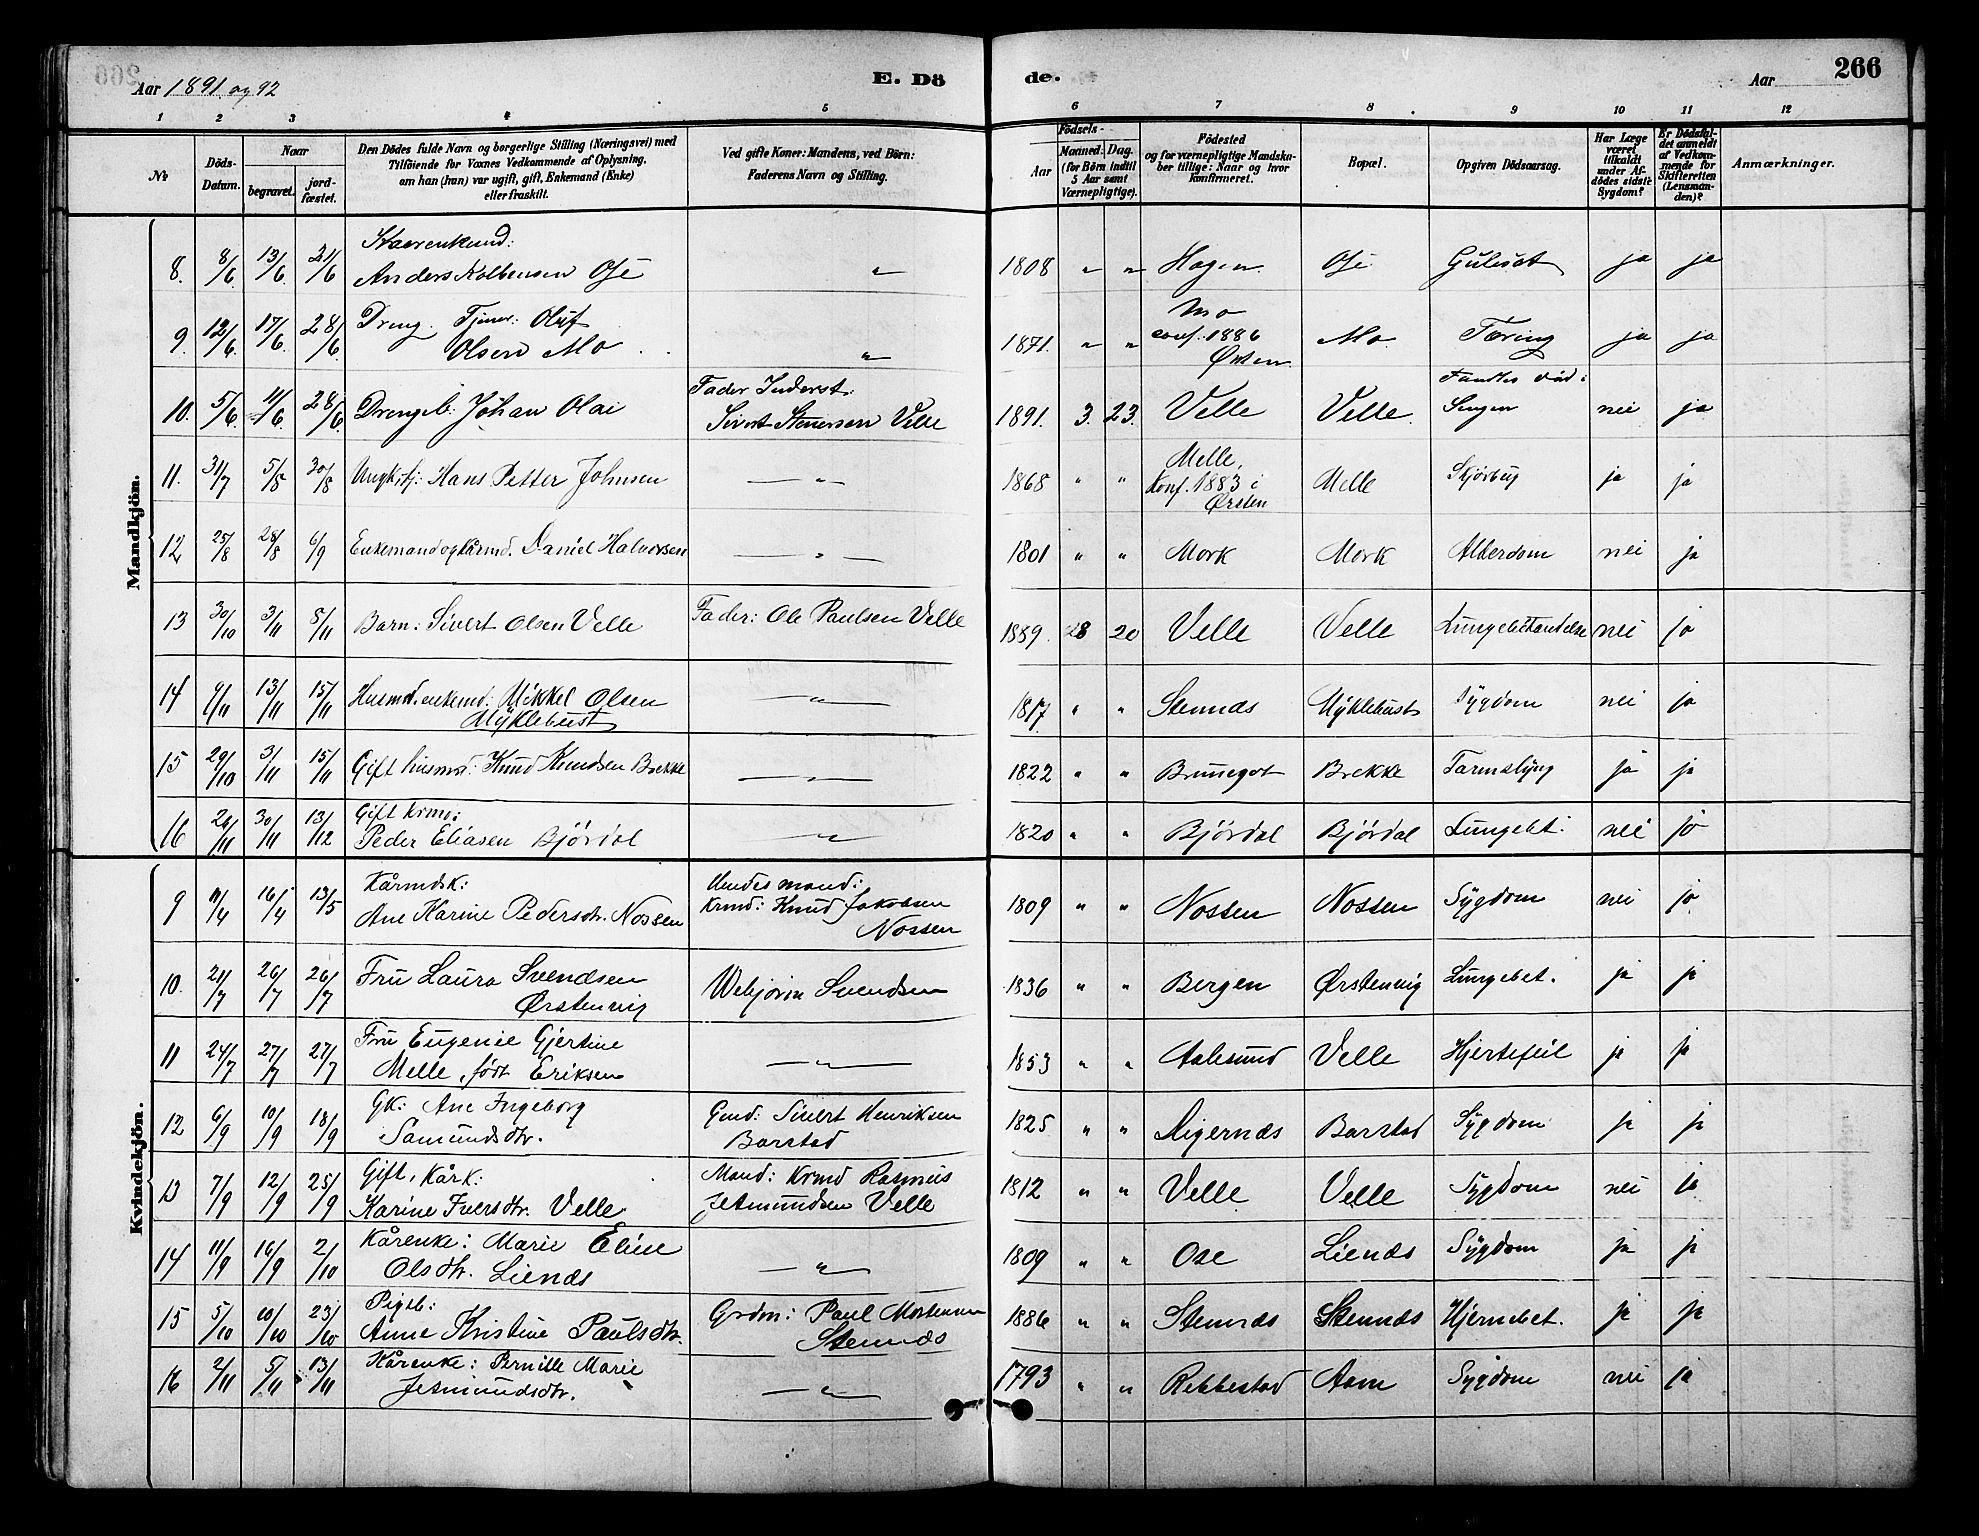 Aar 1891 og 92
E. Dö
de.
Aar
266
1 2 3 4 5 6 7 8 9 10 11 12
No
Döds-Datum.
Naar
begravet.
jord-fæstet.
Den Dödes fulde Navn og borgerlige Stilling (Næringsvei) med
Tilföiende for Voxnes Vedkommende af Oplysning,
om han (hun) var ugift, gift, Enkemand (Enke)
eller fraskilt.
Ved gifte Koner: Mandens, ved Börn:
Faderens Navn og Stilling.
Födsels-
Aar
Maaned. Dag.
(for Börn indtil
5 Aar samt
Værnepligtige).
Födested
og for værnepligtige Mandskaber tillige: Naar og hvor
konfirmeret.
Bopæl.
Opgiven Dödsaarsag.
Har Læge
været
tilkaldt
under Afdödes sidste
Sygdom?
Er Dödsfaldet anmeldt
af Vedkommende for
Skifteretten
(Lensmanden)?
Anmærkninger.
Mandkjön.
8. 8/6 13/6 21/6 Anders Kolbensen Ose " 1808 " " Hagen Ose Gulsot ja ja
9. 12/6 17/6 28/6 Dreng. Tjener: Oluf
Olsen Mo " 1871. " " Mo
conf. 1886
Ørsten Mo Tæring ja ja
10. 5/6 11/6 28/6 Drengeb: Johan Olai Fader Inderst:
Sivert Stenersen Velle 1891. 3. 23. Velle Velle. Fandtes död i
Sengen nei ja
11. 31/7 5/8 30/8 Ungk: Hans Petter Johnsen " 1868 " " Melle,
Konf. 1883 i
Ørsten Melle Skjörbug ja ja
12 25/8 28/8 6/9 Enkemand og kårmd. Daniel Halvorsen " 1801 " " Mork Mork Alderdom nei ja
13 30/10 3/11 8/11 Barn: Sivert Olsen Velle Fader: Ole Paulsen Velle 1889. 28 20 Velle Velle Lungebetændelse nei ja
14 9/11 13/11 15/11 Husmd. enkemd: Mikkel Olsen
Myklebust " 1817 " " Stennes Myklebust Sygdom nei ja
15 29/10 3/11 15/11 Gift husmd: Knud Knudsen Brekke " 1822 " " Brunegot Brekke Tarmslyng ja ja
16 26/11 30/11 13/12 Gift krmd:
Peder Eliasen Björdal " 1820 " " Björdal Björdal Lungebet. nei ja
Kvindekjön.
9 11/4 16/4 13/5 Kårmdsk:
Ane Karine Pedersdr. Nossen Hendes mand:
Krmd: Knud Jakobsen
Nossen 1809 " " Nossen Nossen Sygdom nei ja
10. 21/7 26/7 26/7 Fru Laura Svendsen
Ørstenvig Webjörn Svendsen 1836 " " Bergen Ørstenvig Lungebet. ja ja
11 24/7 27/7 27/7 Fru Eugenie Gjertine
Melle, födt Eriksen " 1853 " " Aalesund Velle Hjertefeil ja ja
12 6/9 10/9 18/9 Gk: Ane Ingeborg
Samundsdtr. Gmd: Sivert Henriksen
Barstad 1825 " " Digernæs Barstad Sygdom ja ja
13 7/9 12/9 25/9 Gift, Kårk:
Karine Iversdtr. Velle Mand: Krmd Rasmus
Jetmundsen Velle 1812 " " Velle Velle Sygdom nei ja
14 11/9 16/9 2/10 Kårenke: Marie Eline
Olsdtr. Lienæs " 1809 " " Ose Lienæs Sygdom ja ja
15 5/10 10/10 23/10 Pigeb:
Anne Kristine Paulsdtr. Grdm: Paul Mortensen
Stennæs 1886 " " Stennæs Stennæs Hjernebet. ja ja
16 2/11 5/11 13/11 Kårenke: Pernille Marie
Jetmundsdtr. " 1793 " " Rebbestad Aam Sygdom nei ja